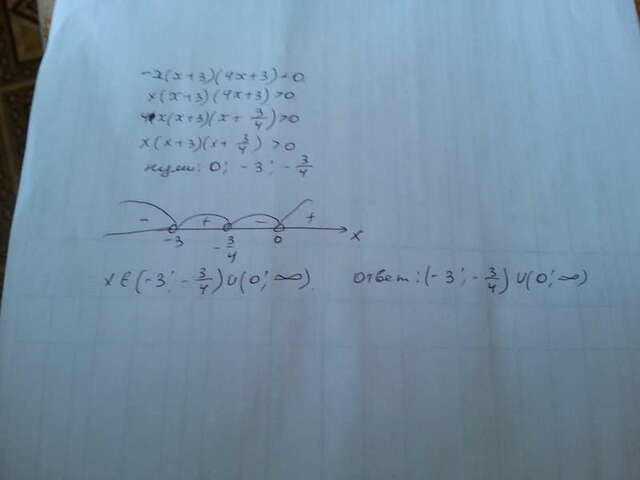 -x(x+3)(4x+3)<0
x(x+3)(4x+3)>0
4x(x+3)(x+3/4)>0
x(x+3)(x+3/4)>0
нули: 0; -3; -3/4
- + - +
-3 -3/4 0 x
x∈(-3;-3/4)∪(0;∞). Ответ: (-3;-3/4)∪(0;∞)